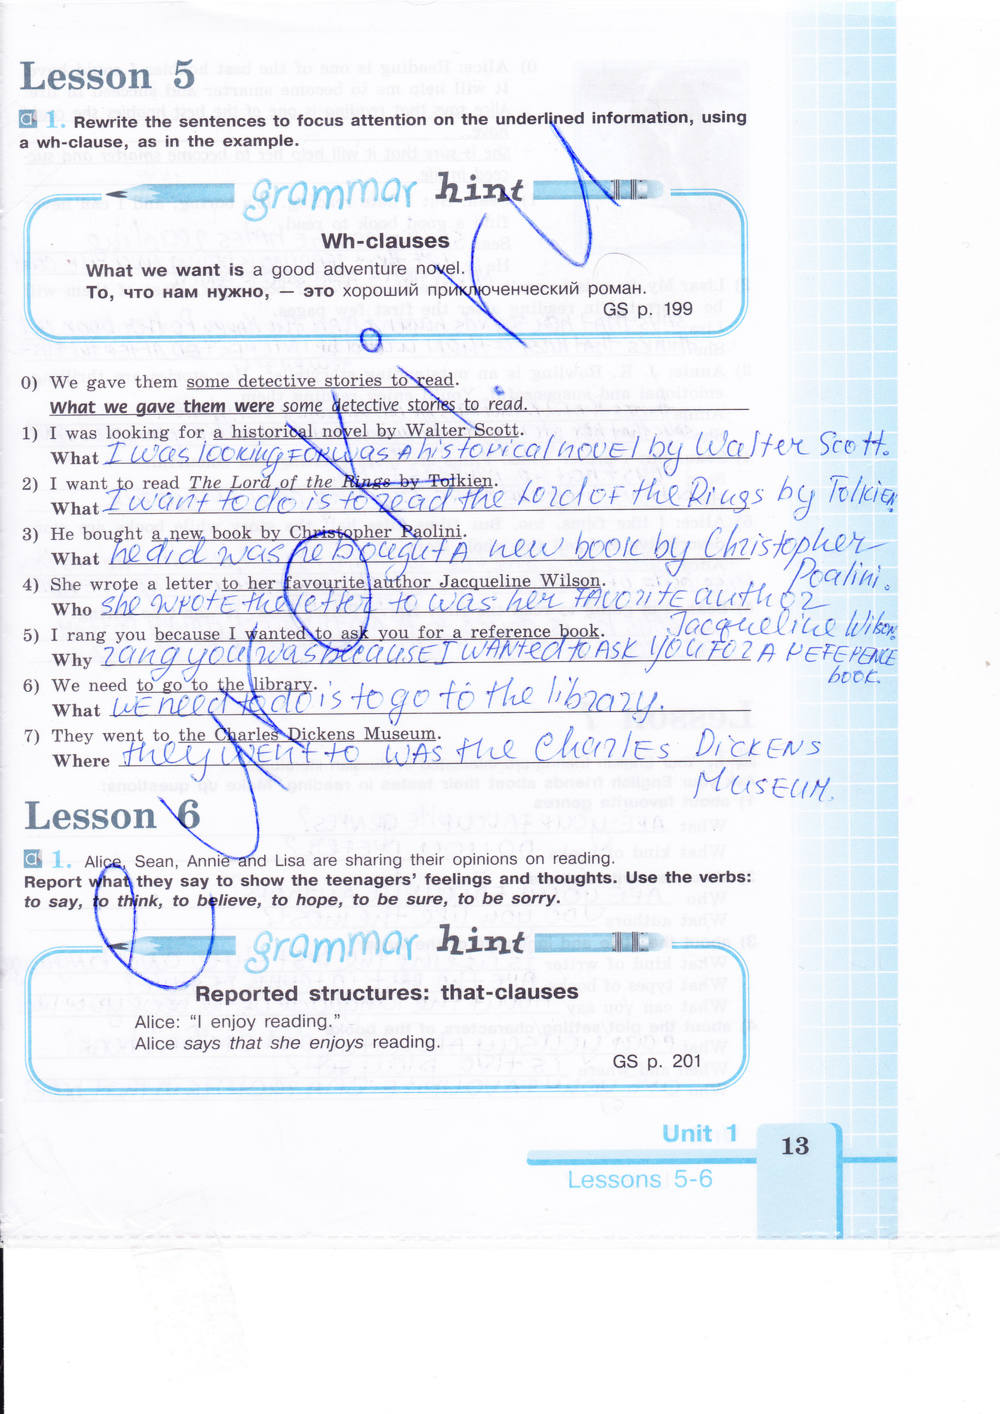 Lesson 5
a 1. Rewrite the sentences to focus attention on the underlined information, using
a wh-clause, as in the example.
grammar hint
Wh-clauses
What we want is a good adventure novel.
То, что нам нужно, — это хороший приключенческий роман.
GS p. 199
0) We gave them some detective stories to read.
What we gave them were some detective stories to read.
1) I was looking for a historical novel by Walter Scott.
What I was looking for was a historical novel by Walter Scott.
2) I want to read The Lord of the Rings by Tolkien.
What I want to do is to read the Lord of the Rings by Tolkien.
3) He bought a new book by Christopher Paolini.
What he did was he bought a new book by Christopher
Poalini.
4) She wrote a letter to her favourite author Jacqueline Wilson.
Who she wrote the letter to was her favorite author
Jacqueline Wilson.
5) I rang you because I wanted to ask you for a reference book.
Why rang you was because I wanted to ask you for a reference
book.
6) We need to go to the library.
What we need to do is to go to the library.
7) They went to the Charles Dickens Museum.
Where they went to was the Charles Dickens
Museum.
Lesson 6
a 1. Alice, Sean, Annie and Lisa are sharing their opinions on reading.
Report what they say to show the teenagers' feelings and thoughts. Use the verbs:
to say, to think, to believe, to hope, to be sure, to be sorry.
grammar hint
Reported structures: that-clauses
Alice: "I enjoy reading."
Alice says that she enjoys reading.
GS p. 201
Unit 1
13
Lessons 5-6